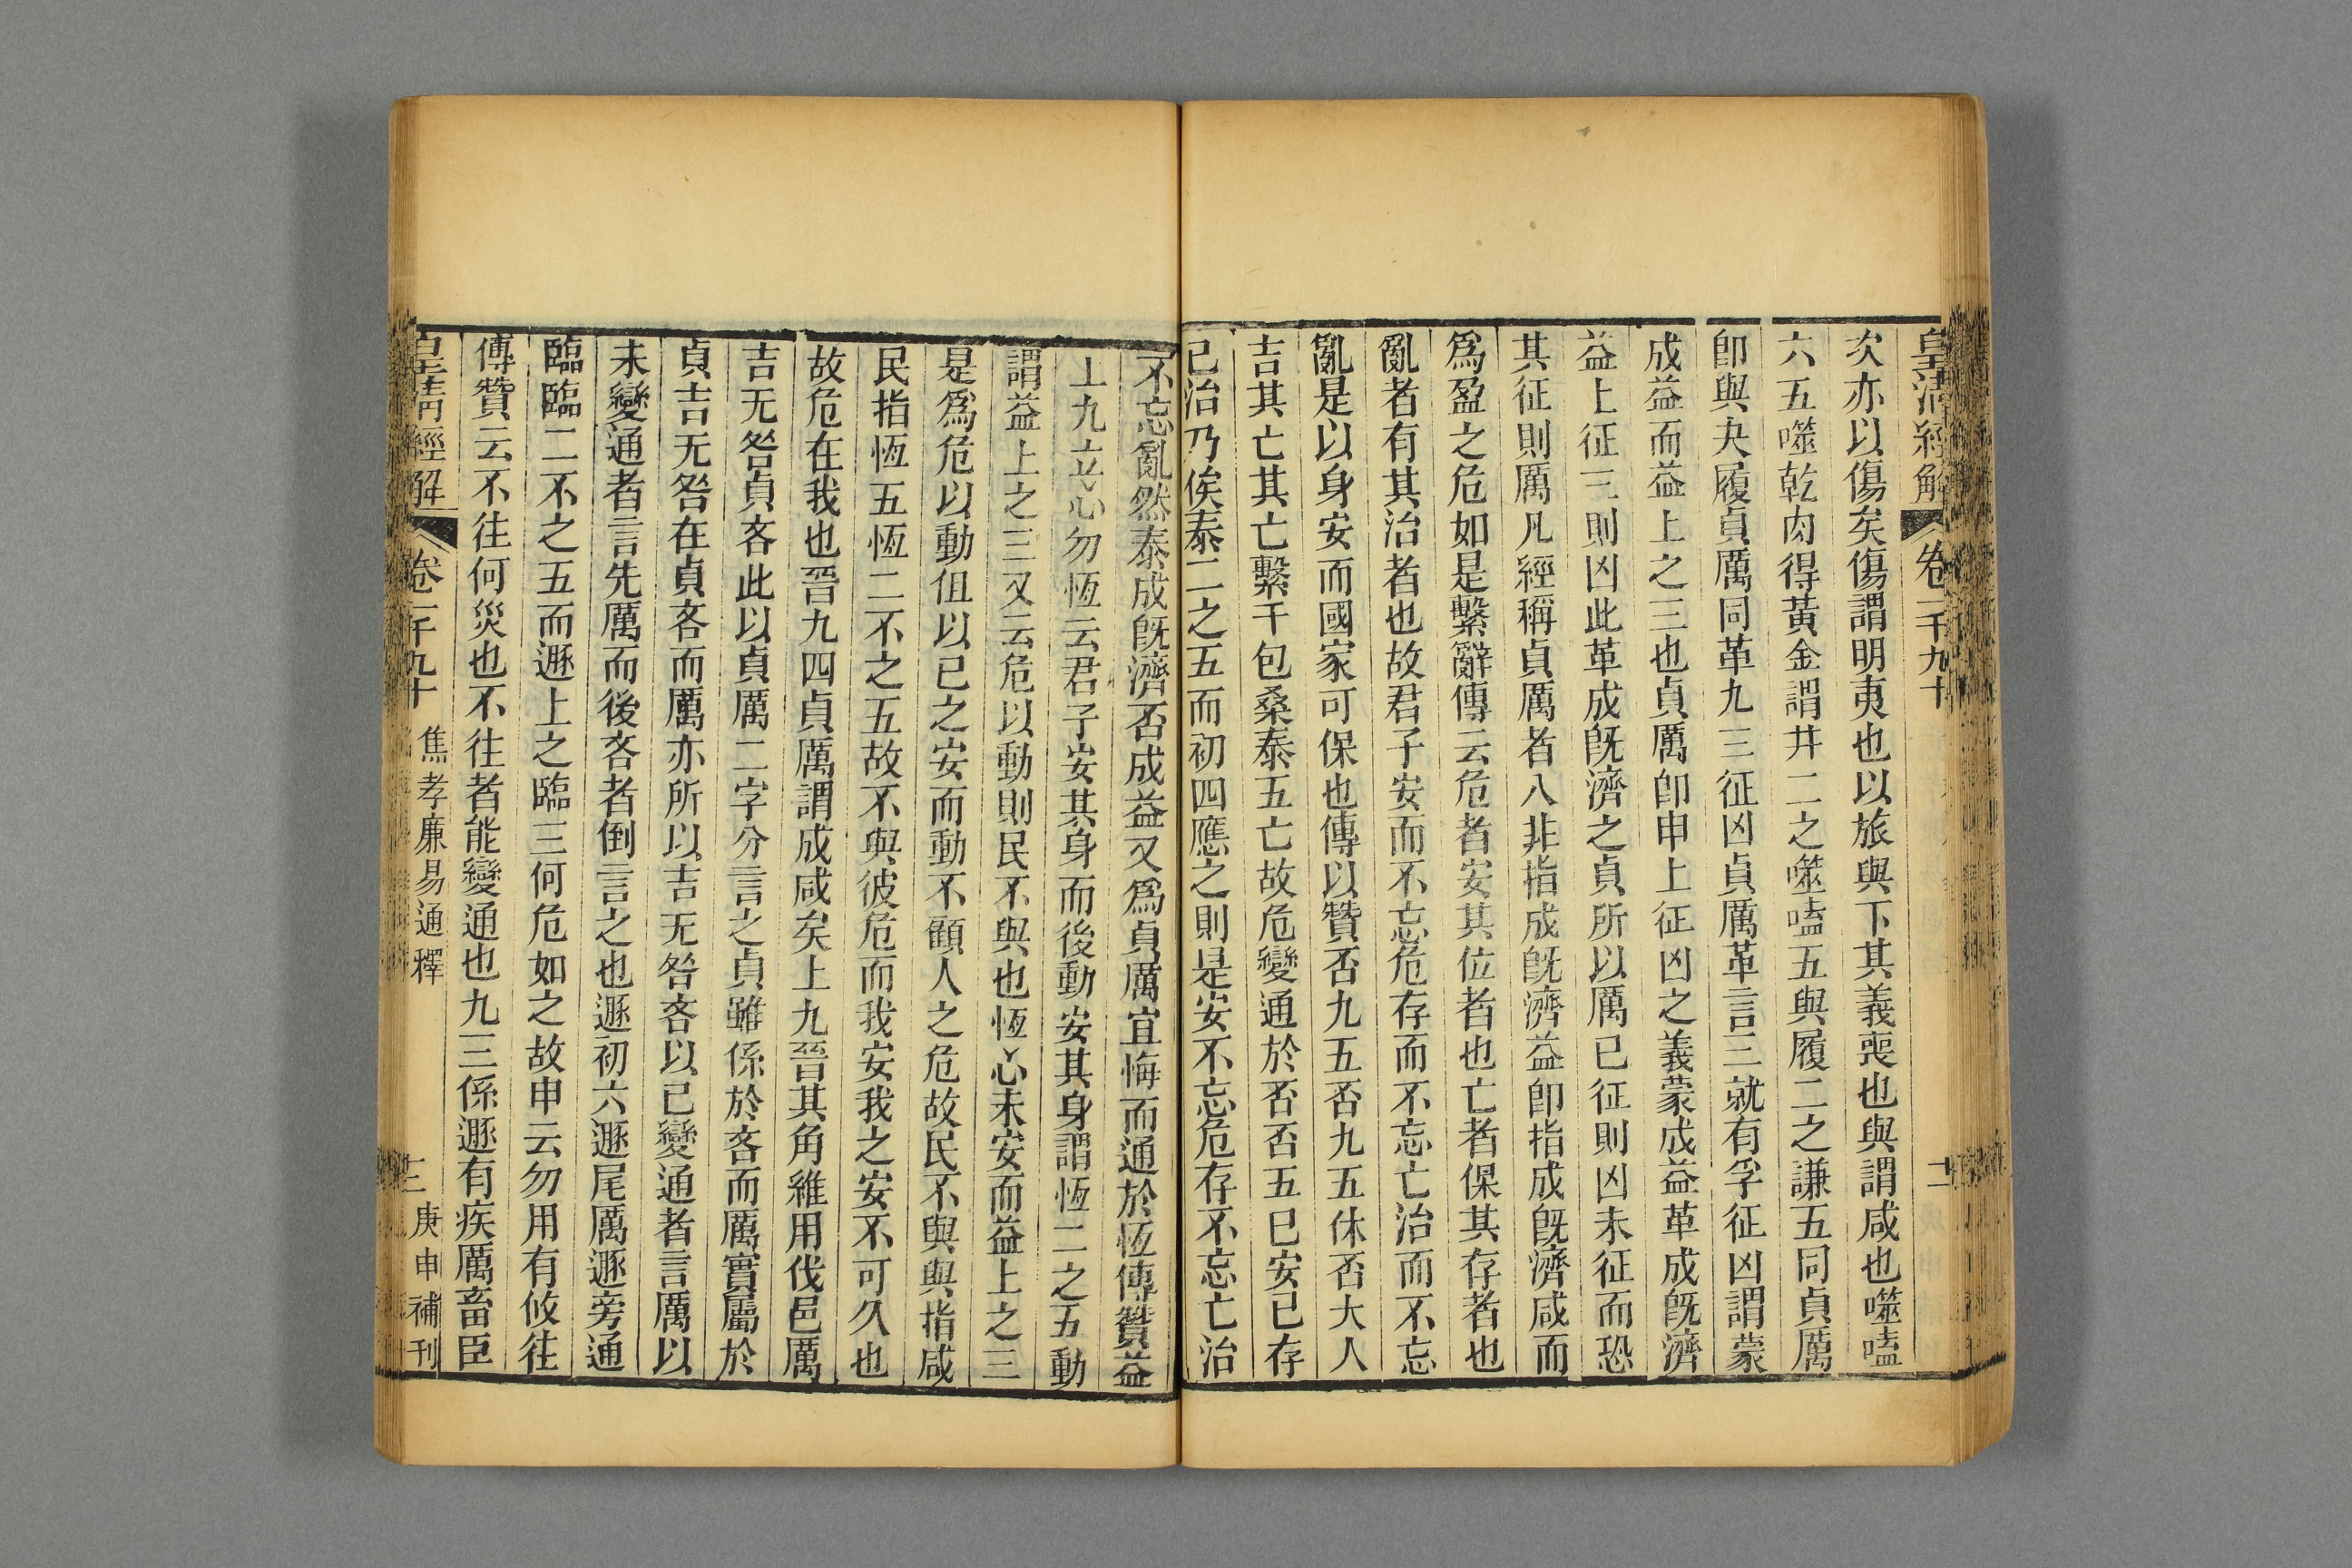 皇清經解 卷一千九十 十二
次亦以傷矣傷謂明夷也以旅與下其義喪也與謂咸也噬嗑
六五噬乾肉得黃金謂井二之噬嗑五與履二之謙五同貞厲
卽與夬履貞厲同革九三征凶貞厲革言三就有孚征凶謂蒙
成益而益上之三也貞厲卽申上征凶之義蒙成益革成旣濟
益上征三則凶此革成旣濟之貞所以厲已征則凶未征而恐
其征則厲凡經稱貞厲者八非指成旣濟益卽指成旣濟咸而
爲盈之危如是繫辭傳云危者安其位者也亡者保其存者也
亂者有其治者也故君子安而不忘危存而不忘亡治而不忘
亂是以身安而國家可保也傳以贊否九五否九五休否大人
吉其亡其亡繫于包桑泰五亡故危變通於否否五巳安已存
已治乃俟泰二之五而初四應之則是安不忘危存不忘亡治
不忘亂然泰成旣濟否成益又爲貞厲宜悔而通於恆傳贊益
上九立心勿恆云君子安其身而後動安其身謂恆二之五動
謂益上之三又云危以動則民不與也恆心未安而益上之三
是爲危以動但以已之安而動不顧人之危故民不與與指咸
民指恆五恆二不之五故不與彼危而我安我之安不可久也
故危在我也晉九四貞厲謂成咸矣上九晉其角維用伐邑厲
吉无咎貞吝此以貞厲二字分言之貞雖係於吝而厲實屬於
貞吉无咎在貞吝而厲亦所以吉无咎吝以已變通者言厲以
未變通者言先厲而後吝者倒言之也遯初六遯尾厲遯旁通
臨臨二不之五而遯上之臨三何危如之故申云勿用有攸往
傳贊云不往何災也不往者能變通也九三係遯有疾厲畜臣
皇清經解 卷一千九十 焦孝廉易通釋 十二 庚申補刊